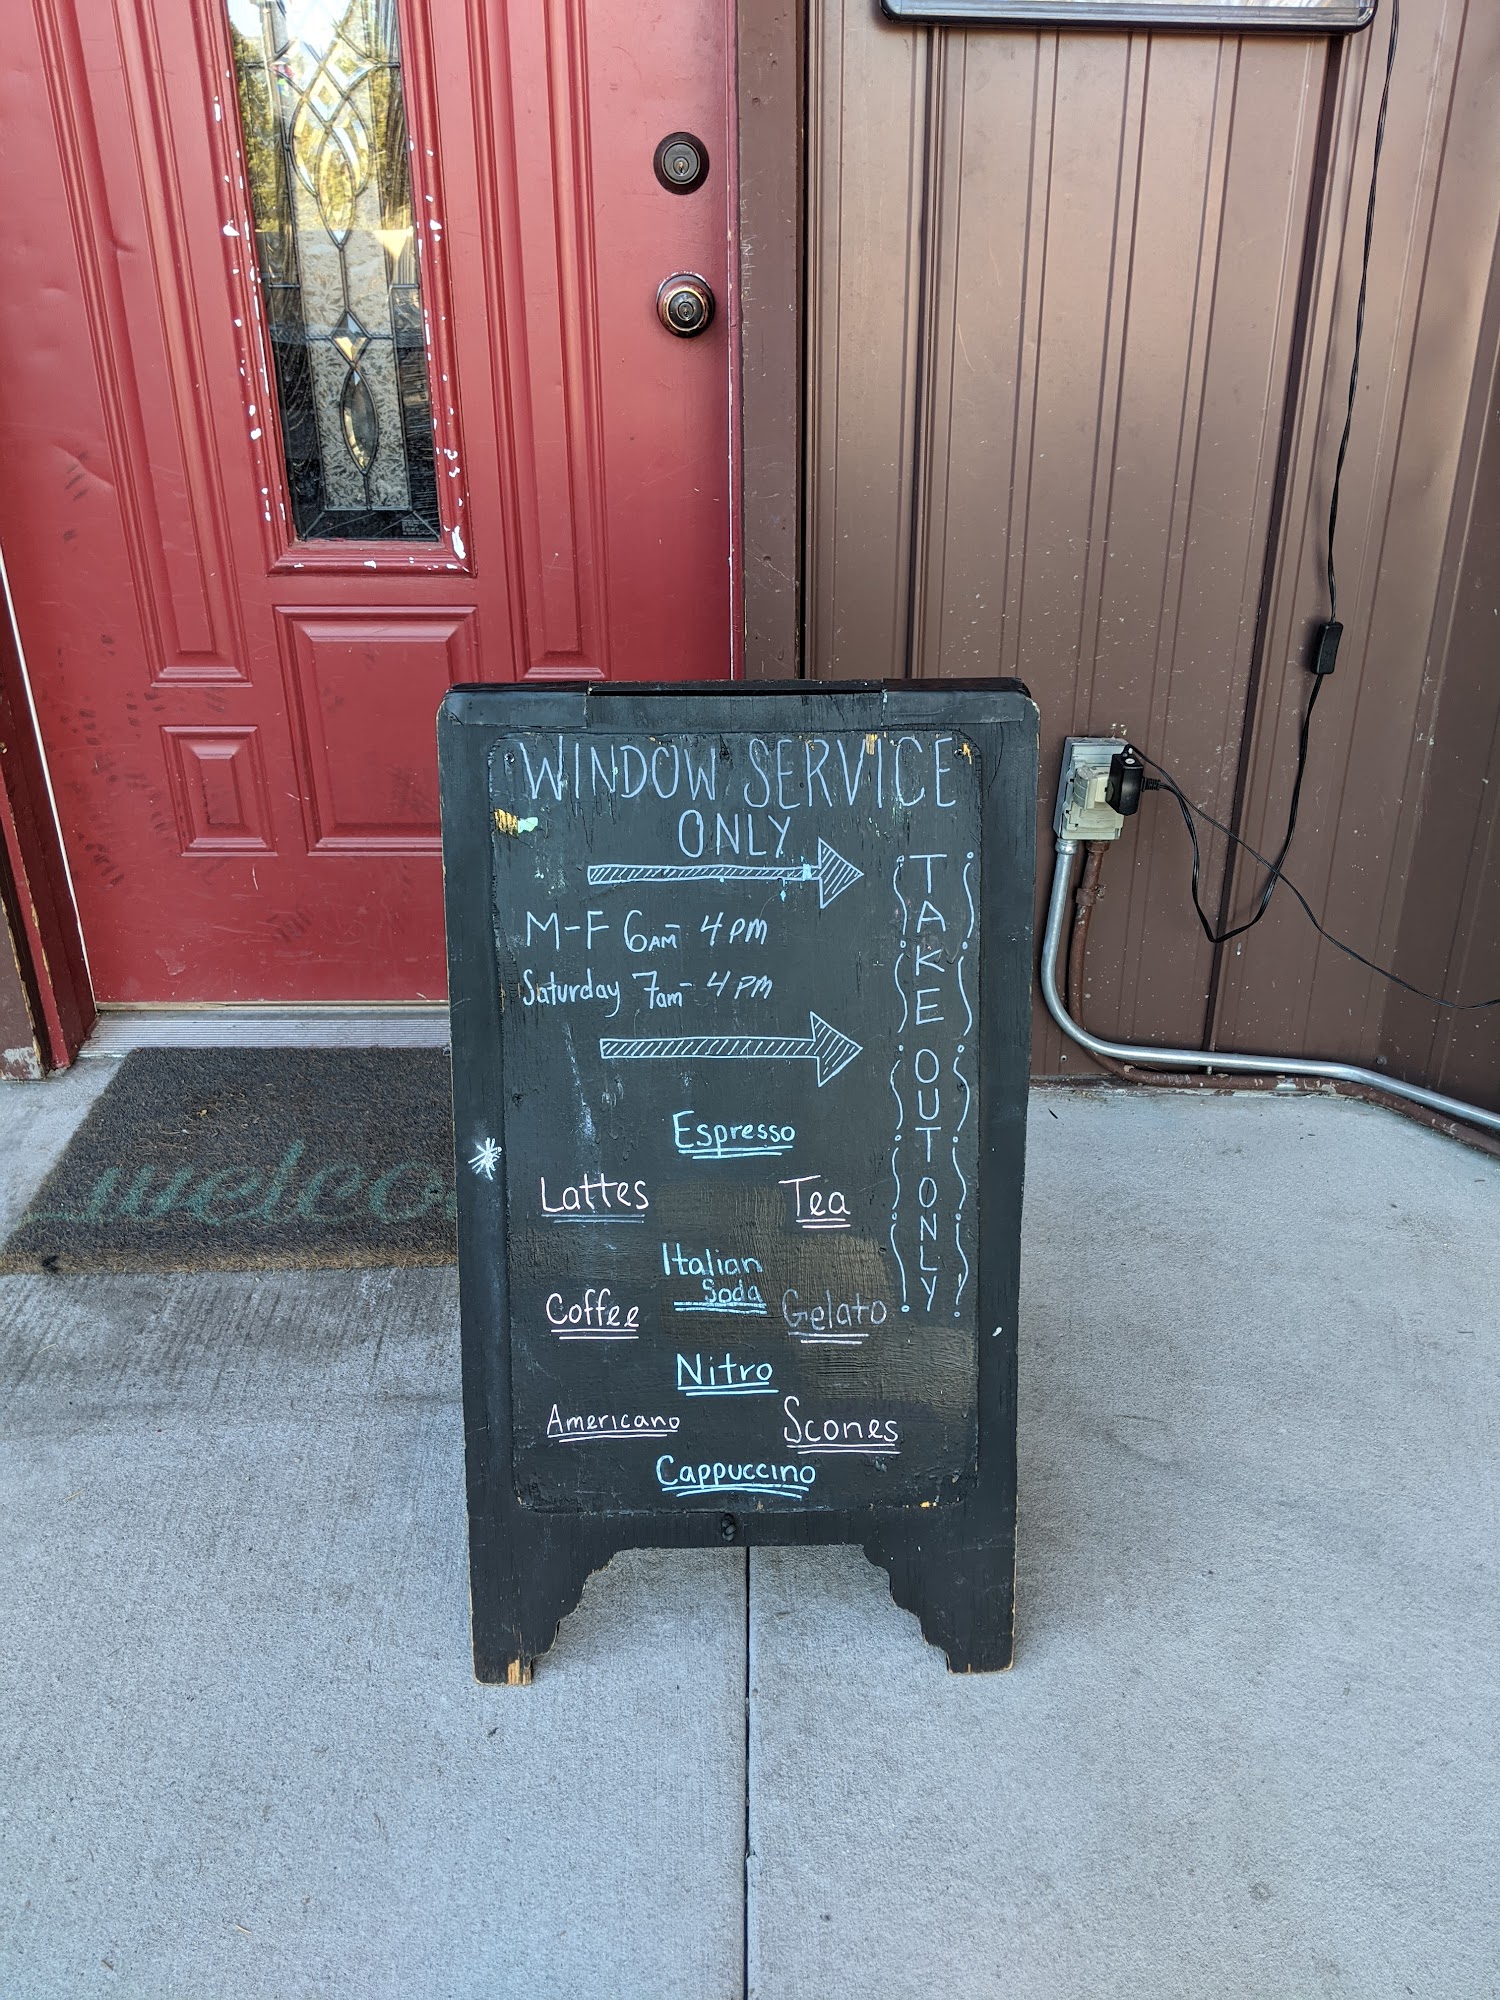 WINDOW SERVICE
ONLY
M-F 6AM- 4PM
Saturday 7am- 4PM
TAKE OUT ONLY
Espresso
Lattes
Tea
Italian
Soda
Coffee
Gelato
Nitro
Americano
Scones
Cappuccino
welco